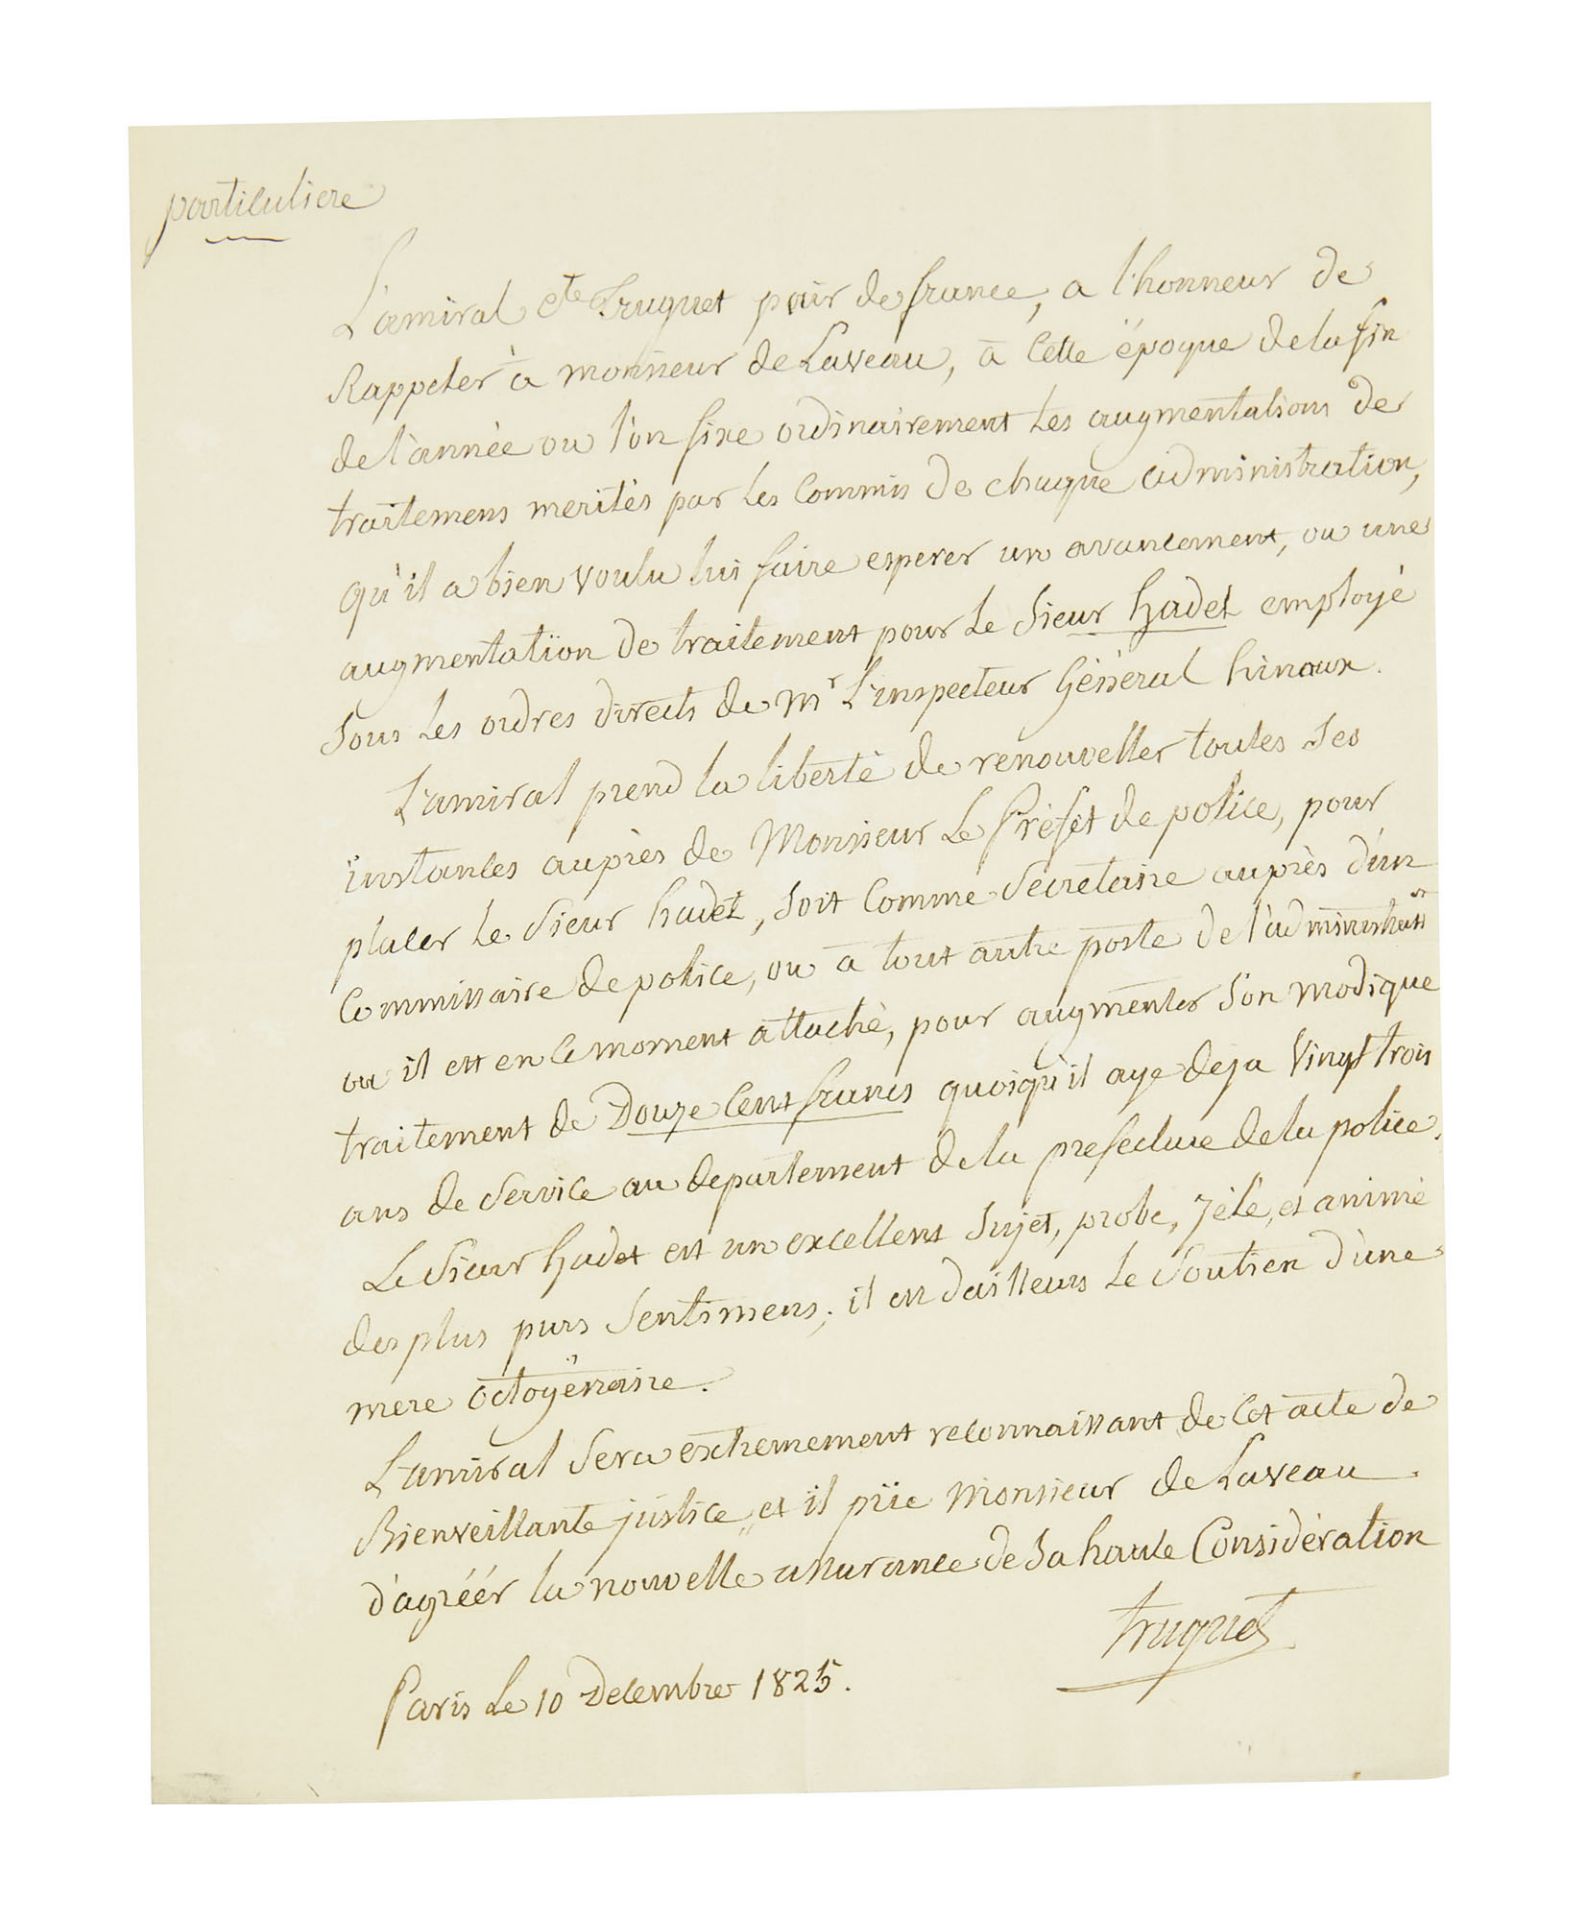 particuliere
L'amiral Cte Truguet pair de france, a l'honneur de
Rappeler à monsieur de Laveau, à cette époque de la fin
de l'année ou l'on fixe ordinairement les augmentations de
traitemens merités par les Commis de chaque administration,
qu'il a bien voulu lui faire esperer un avancement, ou une
augmentation de traitement pour le Sieur hadet employé
Sous les ordres directs de Mr L'inspecteur Général hinaux.
L'amiral prend la liberté de renouveller toutes Ses
instances auprès de Monsieur Le Préfet de police, pour
placer le Sieur hadet, Soit Comme Secretaire auprès d'un
Commissaire de police, ou à tout autre poste de l'administron
ou il est en ce moment attaché, pour augmenter Son modique
traitement de Douze Cent francs quoiqu'il aye deja Vingt trois
ans de Service au departement de la prefecture de la police.
Le Sieur hadet est un excellent Sujet, probe, zélé, et animé
des plus purs Sentimens; il est d'ailleurs le Soutien d'une
mere octogénaire.
L'amiral Sera extremement reconnaissant de Cet acte de
Bienveillante justice, et il prie Monsieur de Laveau
d'agréér la nouvelle assurance de Sa haute Considération
truguet
Paris Le 10 Decembre 1825.